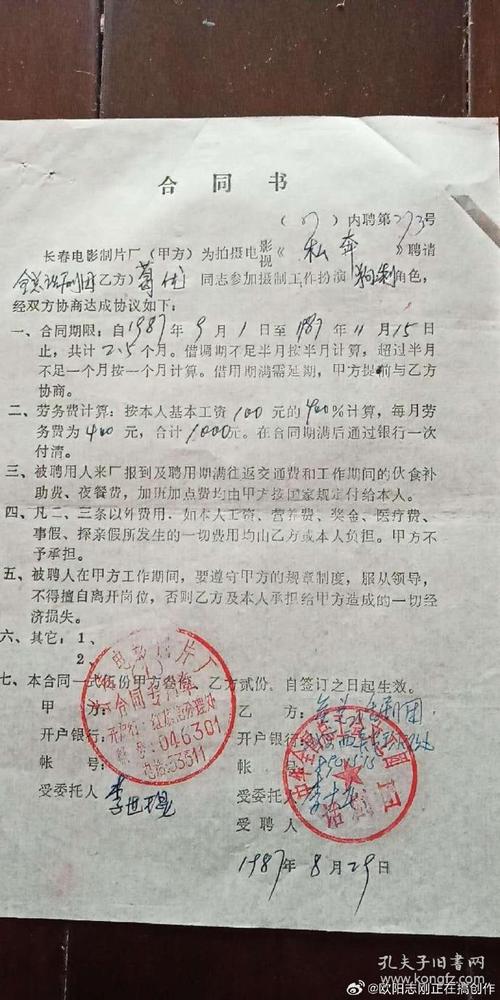 合同书
(87)内聘第273号
长春电影制片厂(甲方)为拍摄电影视《私奔》聘请
全总话剧团乙方)葛优同志参加摄制工作扮演角色,
经双方协商达成协议如下:
一、合同期限:自1987年9月1日至1987年11月15日
止,共计2.5个月。借调期不足半月按半月计算,超过半月
不足一个月按一个月计算。借用期满需延期,甲方提前与乙方
协商。
二、劳务费计算:按本人基本工资100元的400%计算,每月劳
务费为400元,合计1000元。在合同期满后通过银行一次
付清。
三、被聘用人来厂报到及聘用期满往返交通费和工作期间的伙食补
助费、夜餐费,加班加点费均由甲方按国家规定付给本人。
四、凡二、三条以外费用,如本人工资、营养费、奖金、医疗费、
事假、探亲假所发生的一切费用均由乙方或本人负担。甲方不
予承担。
五、被聘人在甲方工作期间,要遵守甲方的规章制度,服从领导,
不得擅自离开岗位,否则乙方及本人承担给甲方造成的一切经
济损失。
六、其它:1、
2、
七、本合同一式伍份甲方叁份,乙方贰份。自签订之日起生效。
甲方:
开户银行:
帐号:
受委托人
电影制片厂
合同专用章
开户行:
帐号:046301
电话:53311
乙方:全总话剧团
开户银行:
帐号:
受委托人
受聘人
话剧团
1987年8月29日
孔夫子旧书网
www.kongfz.com
@欧阳志刚正在搞创作